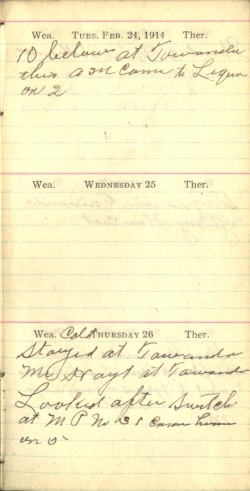 Wea. Tues. Feb. 24, 1914 Ther.
10 below at Towanda
this a m Came to Laquin
on 2
Wea. Wednesday 25 Ther.
Wea. Cold Thursday 26 Ther.
Stayed at Towanda
Mr Hoyt at Towanda
Looked after Switch
at M P No 31 came home
on 5